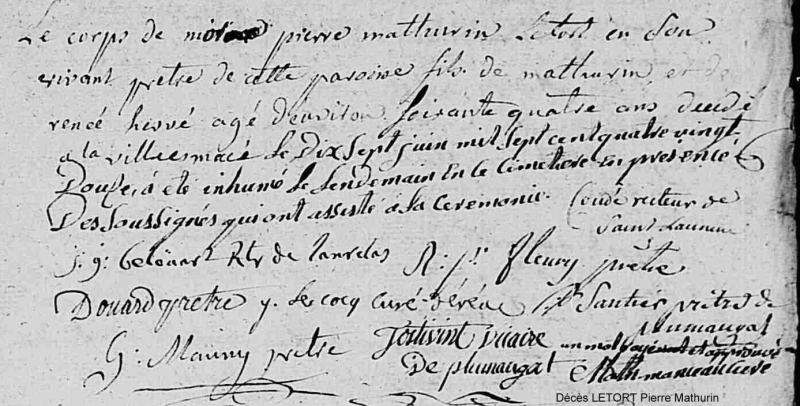 Le corps de pierre mathurin Letort en son
vivant prêtre de cette paroisse fils de mathurin et de
renée hervé agé d'environ soixante quatre ans decedé
a la ville esmacé le Dix Sept juin mil Sept cent quatre vingt
Douze, a été inhumé le Lendemain En le cimetiere En presence
Des Soussignés qui ont assisté à la Ceremonie. Coudé recteur de
Saint Launeuc
Rtr de Lanrelas fleury prêtre
Douard prêtre y. Le cocq curé d'éréac Santier prêtre de
plumaugat
G: Mauny prêtre vicaire un mot rayé
De plumaugat
Décès LETORT Pierre Mathurin